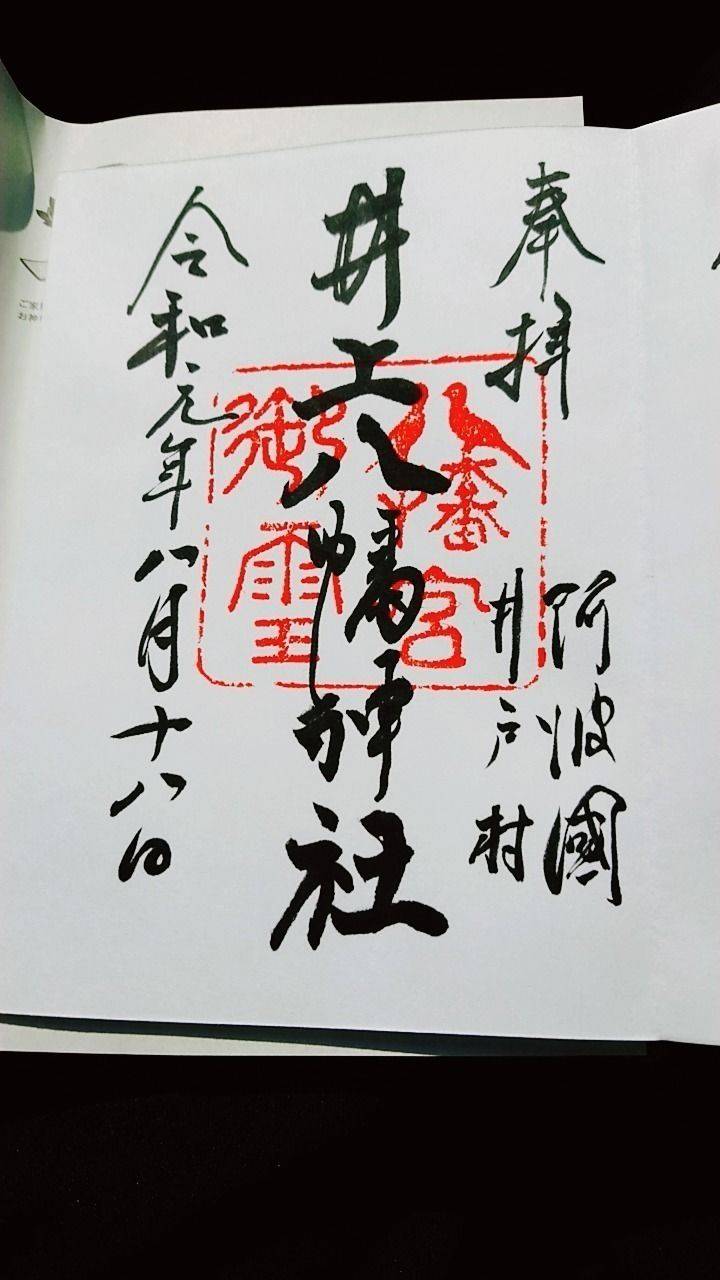 奉拝
阿波國
井戸村
井上八幡神社
八幡宮
御璽
令和元年八月十八日